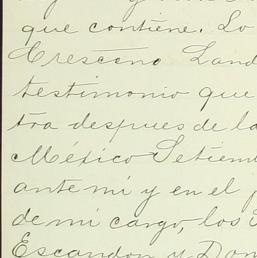 que contiene. Lo
Cresceno Land
testimonio que
tra despues de la
México Setiem
ante mí y en el
de mi cargo, los
Escandon y Don